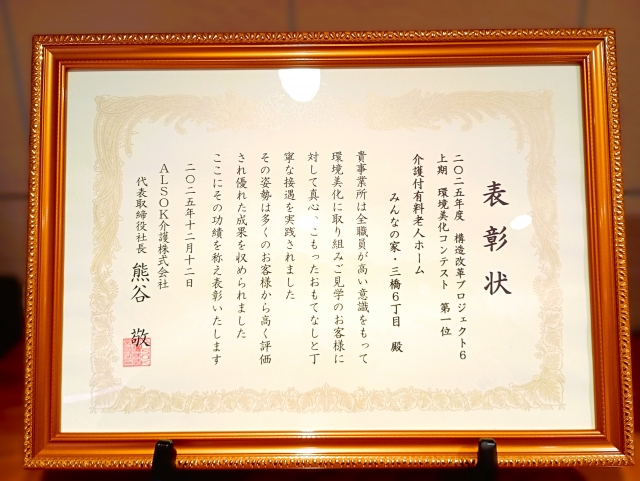 表彰状
二〇二五年度 構造改革プロジェクト6
上期 環境美化コンテスト 第一位
介護付有料老人ホーム
みんなの家・三橋6丁目 殿
貴事業所は全職員が高い意識をもって
環境美化に取り組みご見学のお客様に
対して真心、こもったおもてなしと丁
寧な接遇を実践されました
その姿勢は多くのお客様から高く評価
され優れた成果を収められました
ここにその功績を称え表彰いたします
二〇二五年十二月十二日
ALSOK介護株式会社
代表取締役社長 熊谷 敬